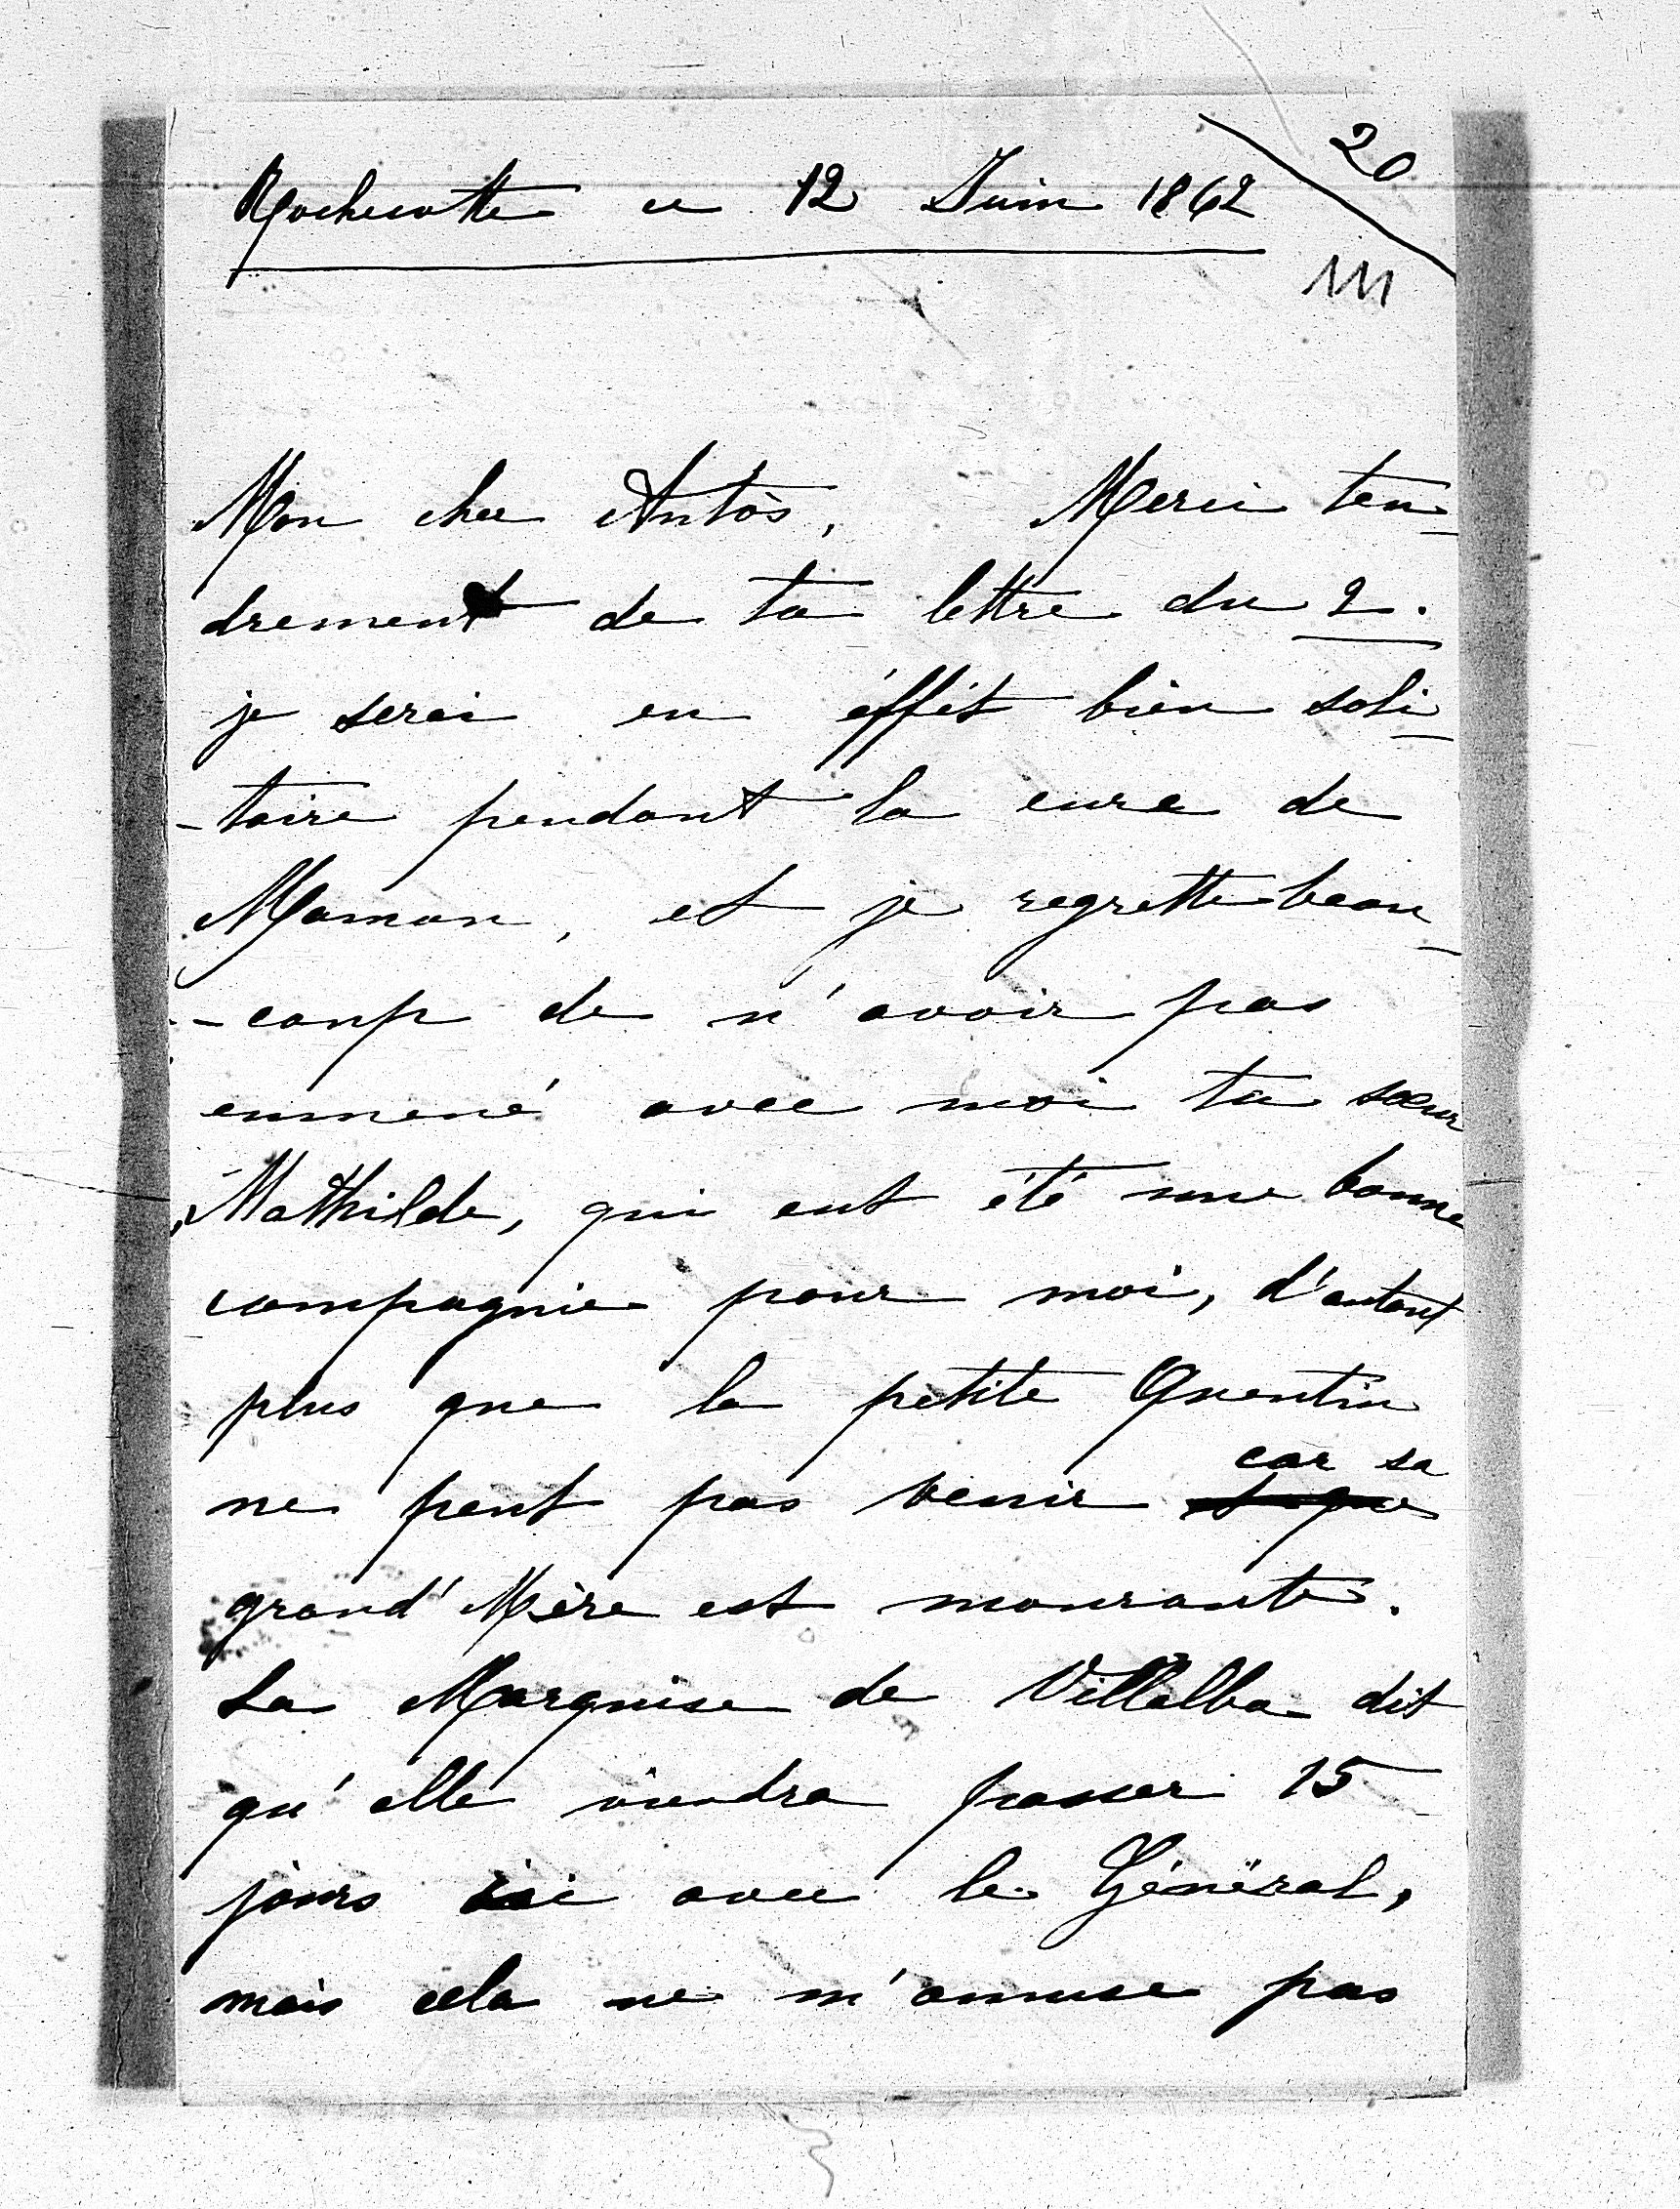 20
Rochecotte ce 12 Juin 1862
111
Mon cher Antôs, Merci ten-
drement de ta lettre du 2.
je serai en éffet bien soli-
-taire pendant la cure de
Maman, et je regrette beau-
-coup de n'avoir pas
emmené avec moi ta sœur
Mathilde, qui eut été une bonne
compagnie pour moi, d'autant
plus que la petite Quentin
car sa
ne peut pas venir
grand' Mère est mourante.
La Marquise de Villalba dit
qu'elle viendra passer 15
jours ici avec le Général,
mais cela ne m'amuse pas